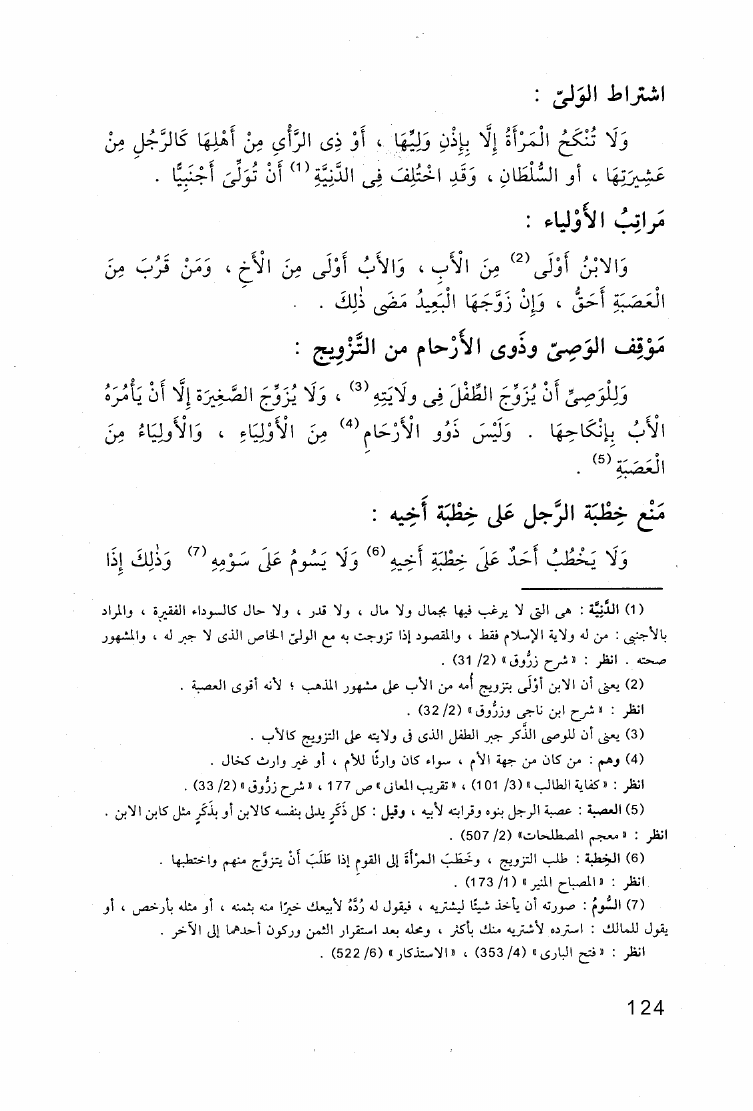 اشتراط الوَلىّ :
وَلَا تُنْكَحُ الْمَرْأَةُ إِلَّا بِإِذْنِ وَلِيِّهَا ، أَوْ ذِى الرَّأْىِ مِنْ أَهْلِهَا كَالرَّجُلِ مِنْ
عَشِيرَتِهَا ، أو السُّلْطَانِ ، وَقَدِ اخْتُلِفَ فِى الدَّنِيَّةِ (1) أَنْ تُوَلِّىَ أَجْنَبِيًّا .
مَراتِبُ الأَوْلياء :
وَالابْنُ أَوْلَى (2) مِنَ الأَبِ ، وَالأَبُ أَوْلَى مِنَ الأَخِ ، وَمَنْ قَرُبَ مِنَ
الْعَصَبَةِ أَحَقُّ ، وَإِنْ زَوَّجَهَا الْبَعِيدُ مَضَى ذٰلِكَ .
مَوْقِف الوَصِىّ وذوى الأَرْحام من التَّزْوِيج :
وَلِلْوَصِىِّ أَنْ يُزَوِّجَ الطِّفْلَ فِى ولَايَتِهِ (3) ، وَلَا يُزَوِّجَ الصَّغِيرَة إِلَّا أَنْ يَأْمُرَهُ
الأَبُ بِإِنْكَاحِهَا . وَلَيْسَ ذَوُو الأَرْحَامِ (4) مِنَ الأَوْلِيَاءِ ، وَالْأَولِيَاءُ مِنَ
الْعَصَبَةِ (5) .
مَنْع خِطْبَة الرَّجل عَلى خِطْبَة أَخِيه :
وَلَا يَخْطُبُ أَحَدٌ عَلَى خِطْبَةِ أَخِيهِ (6) وَلَا يَسُومُ عَلَى سَوْمِهِ (7) وَذٰلِكَ إِذَا
(1) الدَّنِيَّة : هى التى لا يرغب فيها بجمال ولا مال ، ولا قدر ، ولا حال كالسوداء الفقيرة ، والمراد
بالأجنبى : من له ولاية الإسلام فقط ، والمقصود إذا تزوجت به مع الولىّ الخاص الذى لا جبر له ، والمشهور
صحته . انظر : « شرح زرُّوق » (2/ 31) .
(2) يعنى أن الابن أوْلَى بتزويج أمه من الأب على مشهور المذهب ؛ لأنه أقوى العصبة .
انظر : « شرح ابن ناجى وزرُّوق » (2/ 32) .
(3) يعنى أن للوصى الذَّكر جبر الطفل الذى فى ولايته على التزويج كالأب .
(4) وهم : من كان من جهة الأم ، سواء كان وارثًا للأم ، أو غير وارث كخال .
انظر : « كفاية الطالب » (3/ 101) ، « تقريب المعانى » ص 177 ، « شرح زرُّوق » (2/ 33) .
(5) العصبة : عصبة الرجل بنوه وقرابته لأبيه ، وقيل : كل ذَكَرٍ يدلى بنفسه كالابن أو بذَكَرٍ مثل كابن الابن .
انظر : « معجم المصطلحات» (2/ 507) .
(6) الخِطبة : طلب التزويج ، وخَطَبَ المرْأةَ إلى القوم إذا طَلَبَ أَنْ يتزوَّج منهم واختطبها .
انظر : « المصباح المنير » (1/ 173) .
(7) السُّومُ : صورته أن يأخذ شيئًا ليشتريه ، فيقول له رُدَّهُ لأبيعك خيرًا منه بثمنه ، أو مثله بأرخص ، أو
يقول للمالك : استرده لأشتريه منك بأكثر ، ومحله بعد استقرار الثمن وركون أحدهما إلى الآخر .
انظر : « فتح البارى » (4/ 353) ، « الاستذكار » (6/ 522) .
124